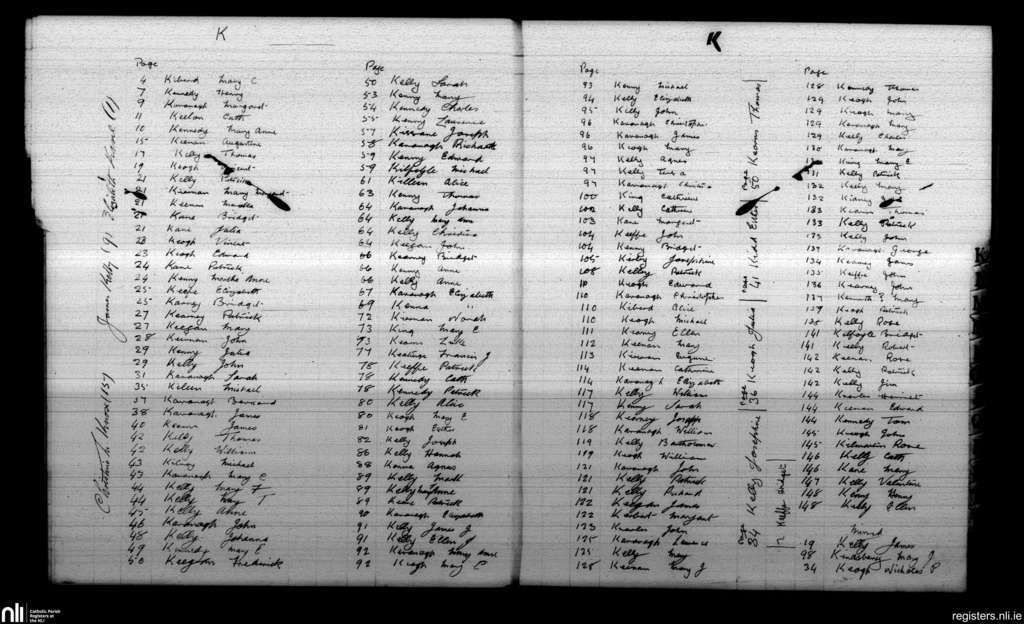 K
Page
4 Kibard Mary C
7 Kennedy Henry
9 Kavanagh Margaret
11 Keelan Cath
10 Kennedy Mary Anne
15 Keenan Augustine
17 Kelly Thomas
19 Keogh
21 Kelly
Kiernan Mary
21 Keenan
21 Kane Bridget
21 Kane Julia
23 Keogh Vincent
23 Keogh Edward
24 Kane Patrick
24 Kenny Martha Anne
25 Keane Elizabeth
25 Kearney Bridget
27 Kearney Patrick
27 Keegan Mary
28 Keenan John
29 Kenny Julia
29 Kelly John
31 Kavanagh Sarah
35 Killeen Michael
37 Kavanagh Bernard
38 Kavanagh James
40 James
42 Kelly Thomas
42 Kelly William
43 Michael
43 Kavanagh Mary C
44 Kelly Mary F
44 Kelly Mary T
45 Kelly Anne
46 Kavanagh John
48 Kelly Johanna
49 Kennedy Mary E
50 Frederick
James Kelly (91)
Page
50 Kelly Sarah
53 Kenny Mary
54 Kennedy Charles
55 Kenny Laurence
57 Kirwane Joseph
58 Kavanagh Richard
59 Kenny Edward
59 Kilfoyle Michael
61 Killeen Alice
63 Kenny Thomas
64 Kavanagh Johanna
64 Kelly Mary Ann
64 Kelly Christina
64 Keegan John
66 Kearney Bridget
66 Kenny Anne
66 Kelly Anne
67 Kavanagh Elizabeth
69 Kenna "
72 Kiernan Norah
73 King Mary E
73 Kearns Luke
77 Keatinge Francis J
78 Keeffe Patrick
78 Kennedy Cath
78 Kennedy Patrick
80 Kelly Alice
80 Keogh Mary E
81 Keogh Esther
82 Kelly Joseph
86 Kelly Hannah
88 Kenna Agnes
89 Kelly
89 Kelly
89 Keane Patrick
90 Kavanagh Elizabeth
91 Kelly James J
91 Kelly Ellen J
92 Kavanagh Mary Anne
92 Keogh Mary P
K
Page
93 Kenny Michael
94 Kelly Elizabeth
95 Kelly John
96 Kavanagh Christopher
96 Kavanagh James
96 Keogh Mary
97 Kelly Agnes
97 Kelly
97 Kavanagh Christina
100 King Catherine
102 Kelly Catherine
103 Kane Margaret
104 Keeffe John
104 Kenny Bridget
105 Kirby Josephine
108 Kelly Patrick
110 Keogh Edward
110 Kavanagh Christopher
110 Kibard Alice
110 Keogh Michael
111 Kearney Ellen
112 Keenan Mary
113 Kiernan Eugene
114 Keenan Catherine
114 Kavanagh Elizabeth
117 Kelly William
117 Kenny Sarah
118 Kearney Joseph
118 Kavanagh William
119 Kelly Bartholomew
119 Keogh William
121 Kavanagh John
121 Kelly Patrick
121 Kelly Richard
122 Keegan James
122 Margaret
123 John
125 Kavanagh Laurence
125 Kelly Mary
128 Keenan Mary J
Page 84 Kelly Josephine
Page 36 Keogh Julia
Page 41 Kidd Esther
Page 50 Kearns Thomas
2 Keeffe Bridget
Page
128 Kennedy Thomas
129 Keogh John
129 Keogh Mary
129 Kavanagh Mary
129 Kelly Charles
130 Kavanagh May
King Mary E
131 Kelly Patrick
132 Kelly Mary
132
133 Thomas
133 Kelly Patrick
133 Kelly John
134 Kavanagh George
134 Kenny James
135 Keeffe John
136 Kearney John
137 Mary
139 Keogh Patrick
Kelly Rose
141 Kilfoyle Bridget
141 Kelly Robert
142 Keenan Rose
142 Kelly Patrick
142 Kelly Jim
144
144 Keenan Edward
144 Kennedy Tom
145 Keogh John
145 Kilmartin Rose
146 Kelly Cath
146 Kane Mary
147 Kelly Valentine
148 Kenny Henry
148 Kelly Ellen
19 Kelly James
98 Mary J
34 Keogh Nicholas P
nli
Catholic Parish
Registers at
the NLI
registers.nli.ie